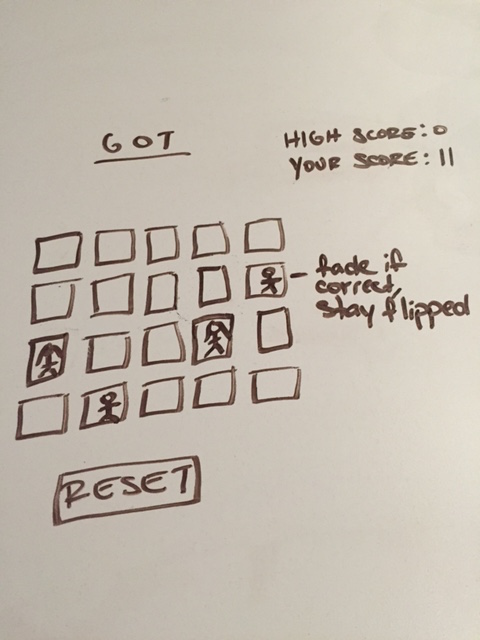 GOT
HIGH SCORE: 0
YOUR SCORE: 11
fade if
correct,
stay flipped
RESET